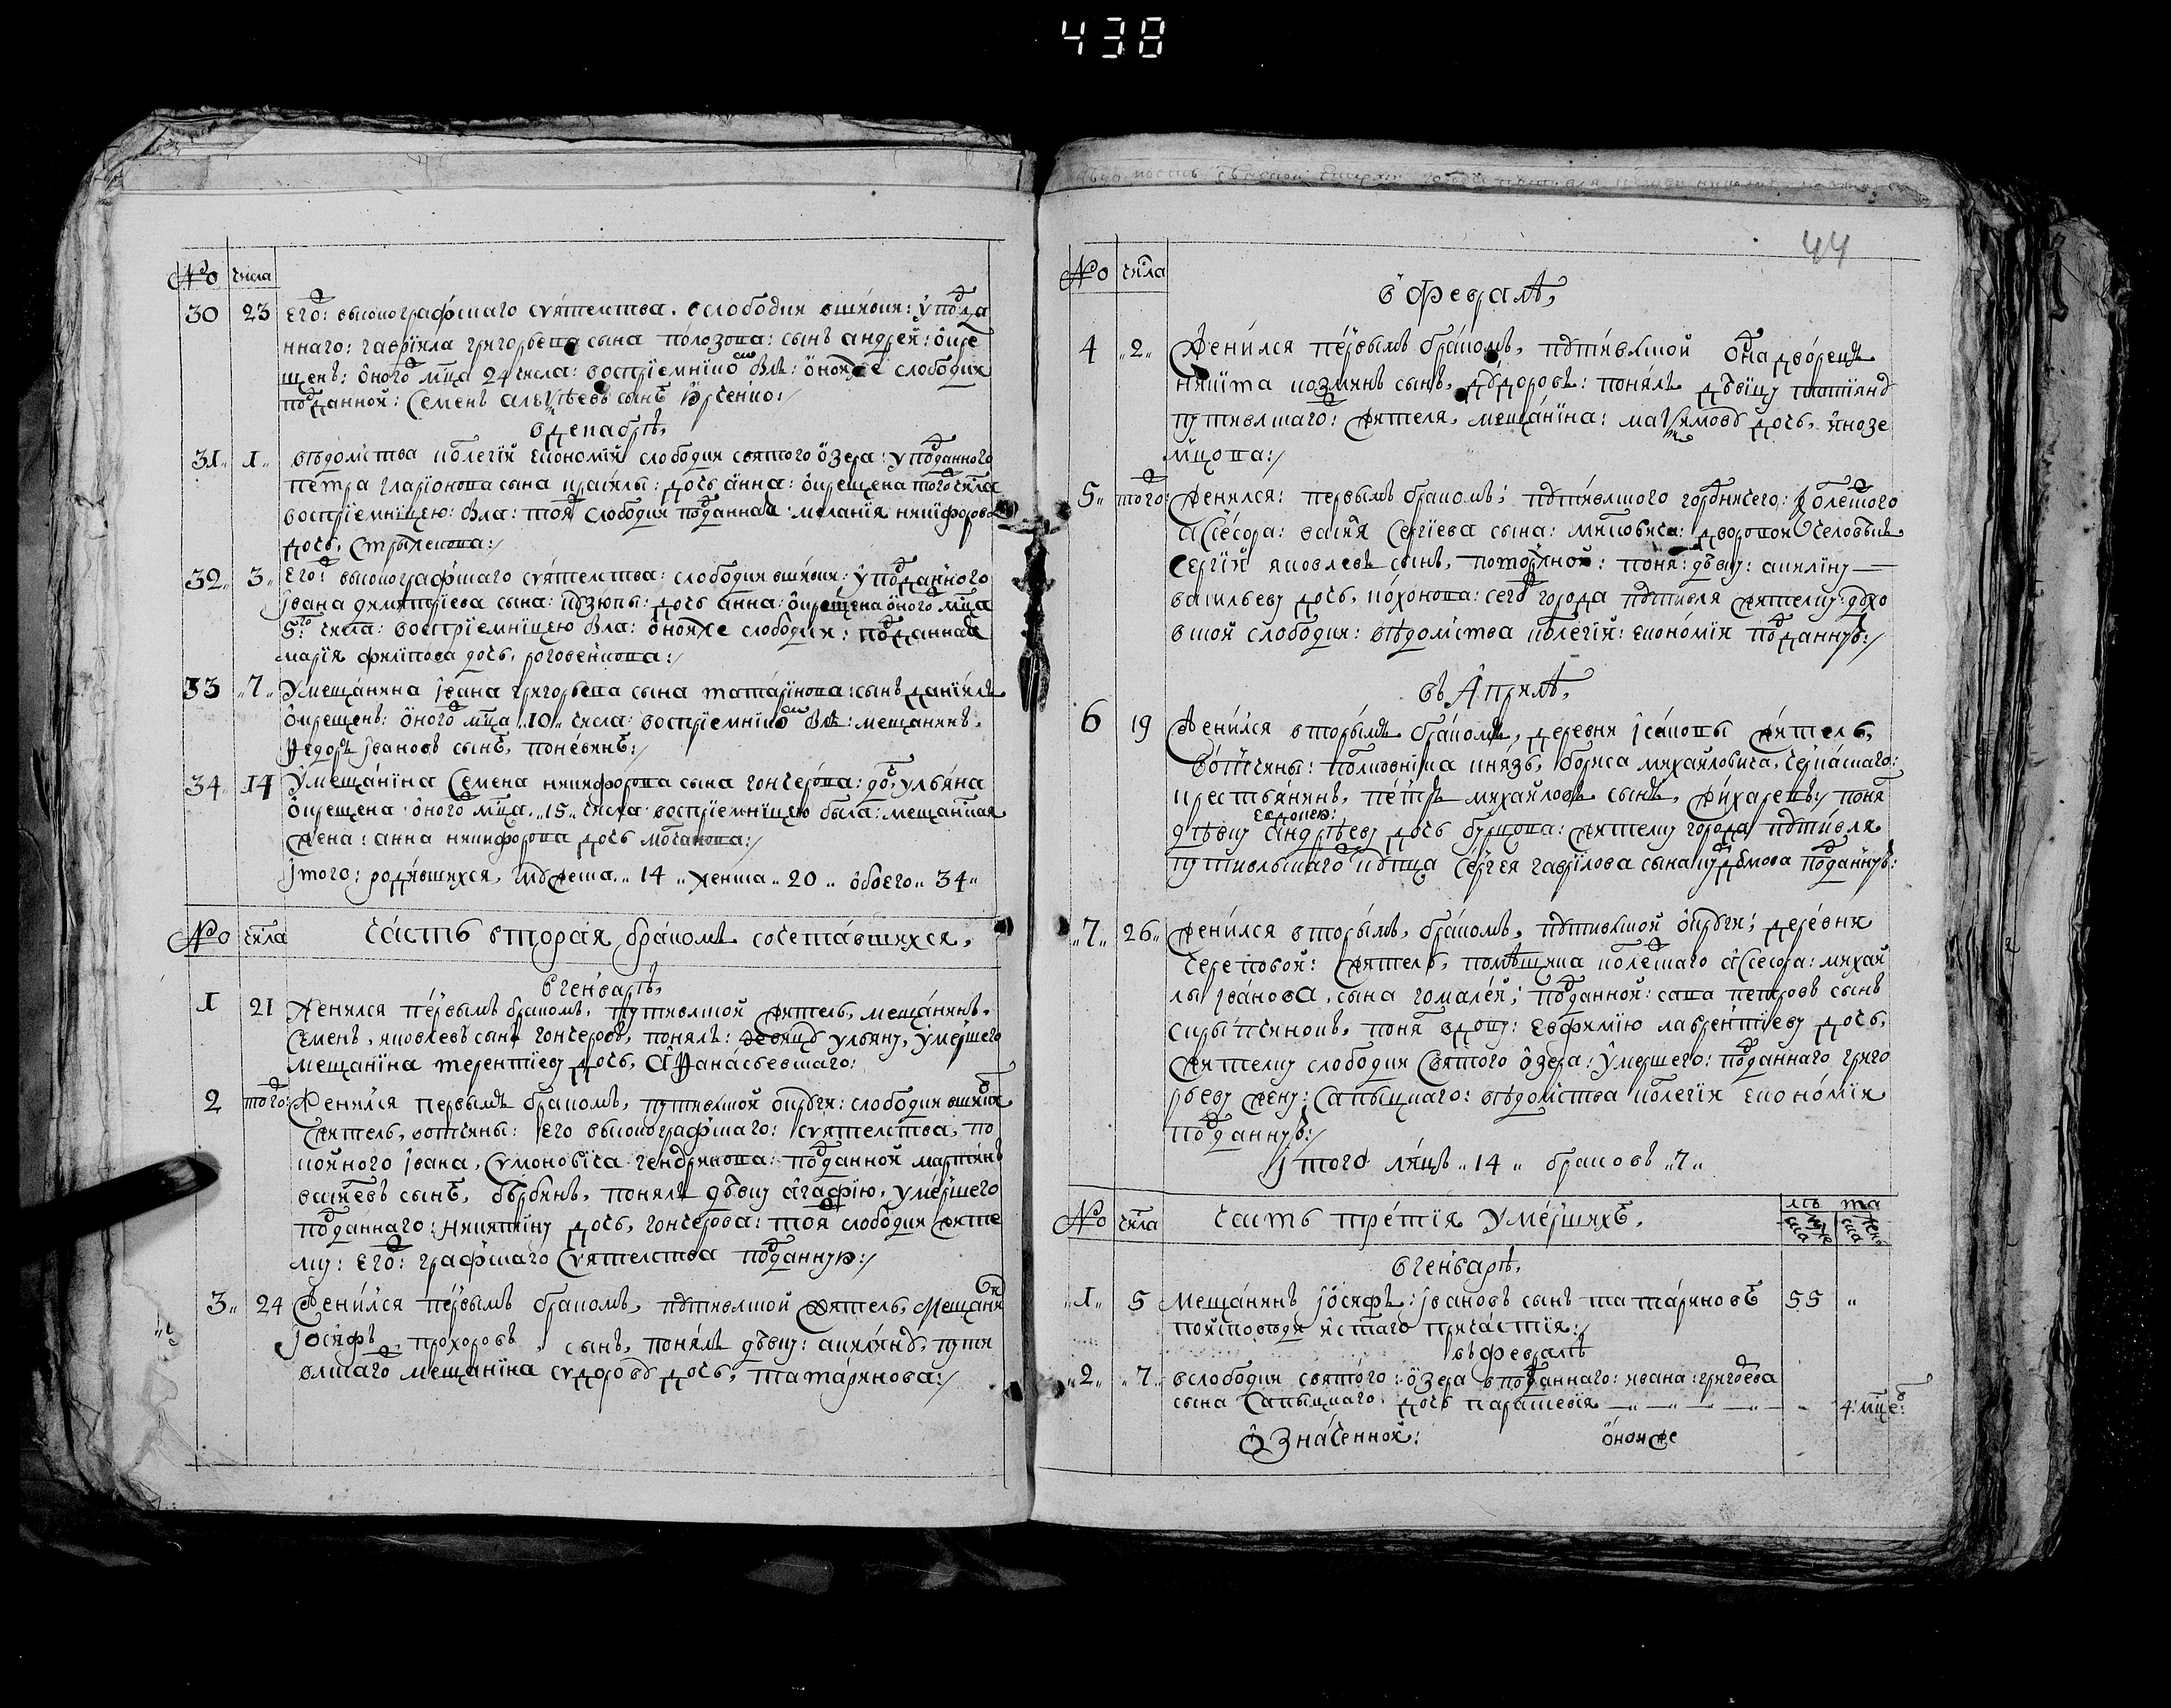 438
№ числа
30 23 Его: высокографскаго сиятелства. вслободки вшивки: у подда
ннаго: гавриила григорьева сына полозова: сынъ андрей: окре
щенъ: оного мца 24 числа: восприемникомъ былъ: оной же слободки
подданной: Семенъ сынъ
в декабрѣ,
31 1 вѣдомства колегии економии слободки святого озера: у подданного
петра гларионова сына: дочь анна: окрещена того числа
восприемницею: была: тоя слободки подданная: мелания никифорова
дочь, Стрыженова:/
32 3 Его: высокографскаго сиятелства: слободки вшивки: у подданного
ивана димитриева сына: кузюпы: дочь анна: окрещена оного мца
5го числа: восприемницею была: оной же слободки: подданная
мария филипова дочь, роговенкова:/
33 7 У мещанина ивана григорьева сына татаринова: сынъ даниилъ
окрещенъ: оного мца 10 числа: восприемникомъ былъ: мещанинъ,
Федоръ ивановъ сынъ, поневинъ:/
34 14 У мещанина Семена никифорова сына гончерова: дочь, ульяна
окрещена оного мца 15 числа восприемницею была: мещанская
жена: анна никифорова дочь мочанова:/
Итого: родившихся, мужеска 14 женска 20 обоего 34
№ числа Часть вторая бракомъ сочетавшихся,
в генварѣ,
1 21 Женился первымъ бракомъ, путивлской житель, мещанинъ,
Семенъ, яковлевъ сынъ гончеровъ, понялъ: девицу ульяну, умершего
мещанина терентиеву дочь, Афанасьевскаго:
2 того: Женился первымъ бракомъ, путивлской округи: слободки вшивки
житель, вотчины: его высокографскаго: сиятелства, по
койного ивана, Симоновича гендрикова: подданной мартинъ
сынъ, понялъ дѣвку агафию, умершего
подданнаго: никитину дочь, гончерова: тоя слободки жите
лку: его: графскаго Сиятелства подданную:/
3 24 Женился первымъ бракомъ, путивлской житель, Мещанинъ
иосифъ, прохоровъ, сынъ, понялъ дѣвку: акилину, пути
влскаго мещанина сидорову дочь, татаринова:/
44
№ числа
в Февралѣ,
4 2 Женился первымъ бракомъ, путивлской однадворецъ
никита козминъ сынъ, дудоровъ: понялъ дѣвицу татияну
путивлскаго: жителя, мещанина: максимову дочь, инозе
мцова:/
5 того: Женился: первымъ бракомъ; путивлского городничего: колешского
Ассесора: Сергиева сына: дворовой человѣкъ
Сергий яковлевъ сынъ, поня: дѣвку: акилину
васильеву дочь, кохонова: сего города путивля жителку: духо
вской слободки: вѣдомства колегии: економии подданную:/
въ Априлѣ,
6 19 Женился вторымъ бракомъ, деревни исаковы житель,
вотчины: полковника князь, бориса михайловича, Черкаскаго:
крестьянинъ, петръ михайловъ сынъ, жихаревъ:/ поня
евдокею:
дѣвку андрѣеву дочь бурцова: жителку города путивля
путивлскаго купца Сергея гаврилова сына подданную:
7 26 Женился вторымъ, бракомъ, путивлской округи; деревни
череповой: житель, помѣщика колешскаго ассесора: михай
лы иванова, сына гомалей; подданной: сава петровъ сынъ
поня вдову: евфимию лаврентиеву дочь,
жителку слободки Святого озера: умершего: подданнаго григо
рьеву жену: Сапыцкаго: вѣдомства колегии економии
подданную:/
Итого лицъ 14 браковъ 7
№ числа часть третия умершихъ,
лѣта
мужеска женска
в генварѣ,
1 5 Мещанинъ иосифъ: ивановъ сынъ татариновъ 55
по исповѣди и стаго причастия:/
въ февралѣ
2 7 вслободки святого: озера в подданнаго: ивана: григорева
сына Сапыцкаго, дочь парасковия 4: мцев:
Означенной: оной же